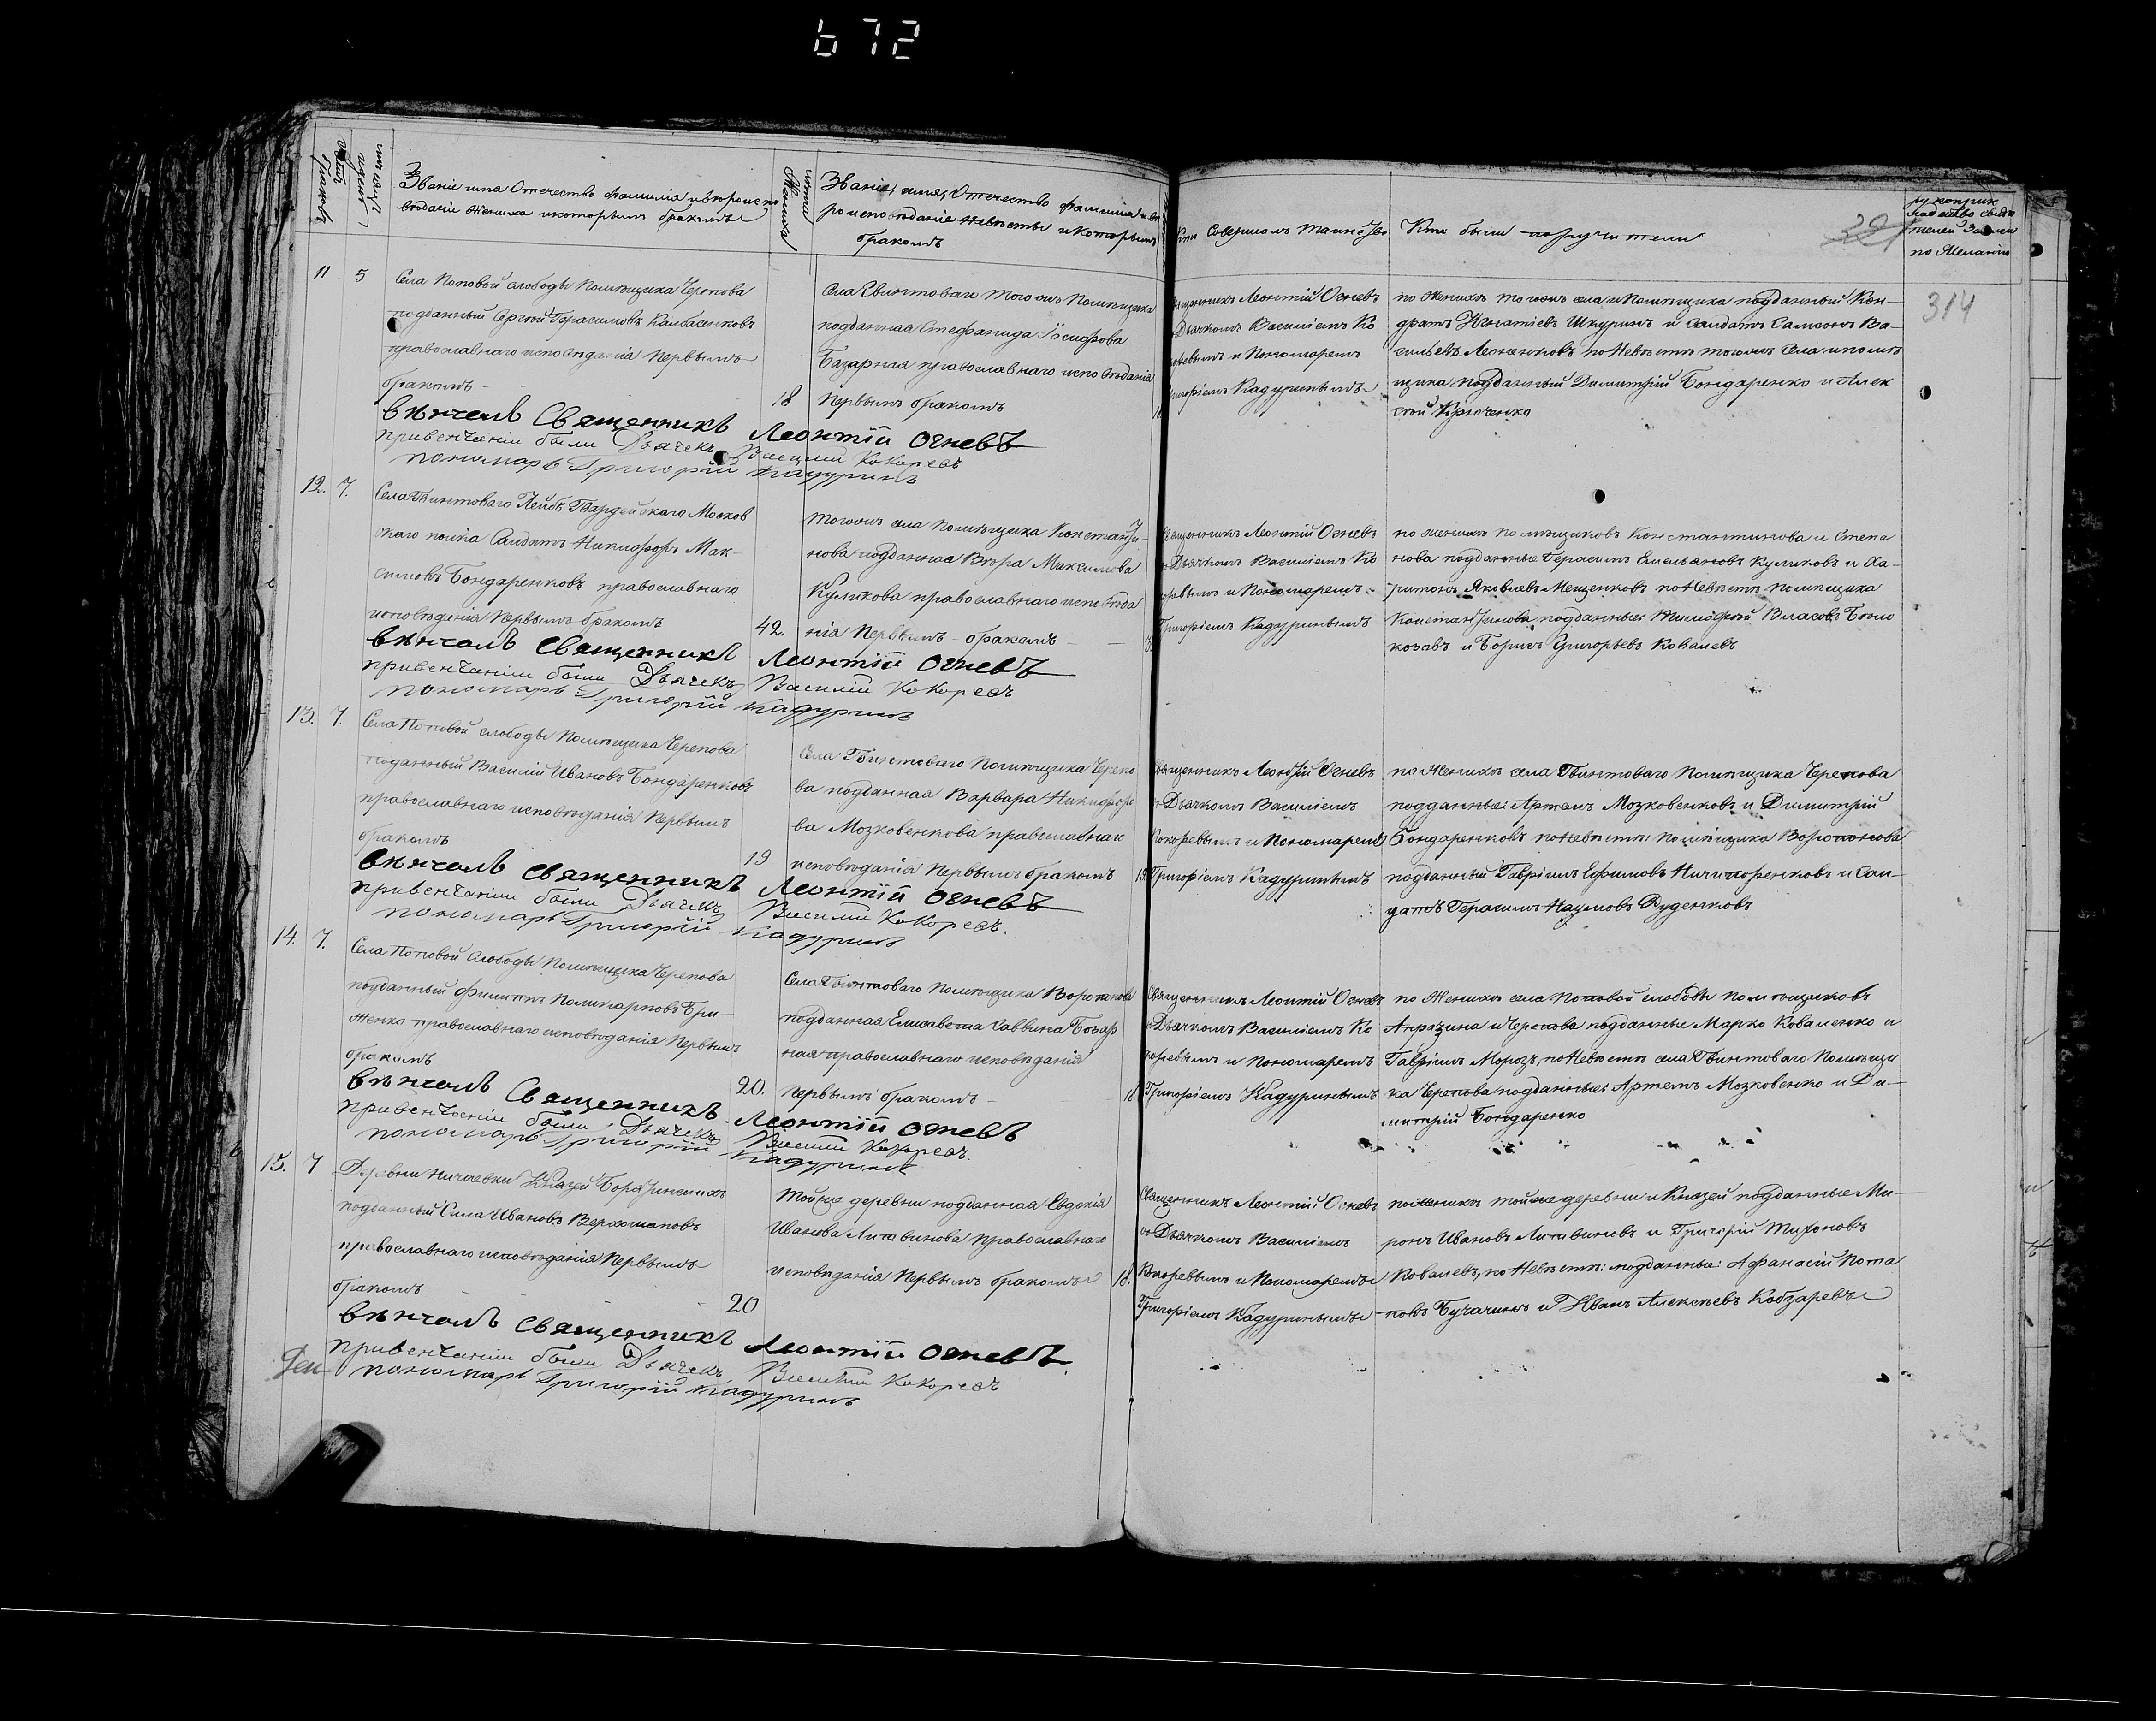 672
Счетъ браковъ
Званіе имя Отечество Фамилія и вероиспо
веданіе Жениха и которымъ бракомъ
лѣта Жениха
Званіе, имя, Отечество фамилія и ве
роисповѣданіе Невѣсты и которымъ
бракомъ
Кто Совершалъ таинство
Кто были поручители
по Желанію
314
11 5
Села Поповой слободы Помѣщика Черепова
подданный Сергей Герасимовъ Канбасенковъ
православнаго исповѣданія первымъ
бракомъ
18
Села Гвинтоваго того жъ Помѣщика
подданная Стефанида Іосифова
Базарная православнаго исповѣданія
Первымъ бракомъ
Священникъ Леонтій Огневъ
съ Дьячкомъ Василіемъ Ко
коревымъ и Пономаремъ
Григоріемъ Кадуринымъ
по Женихѣ того жъ села и Помѣщика подданный Кон-
дратъ Игнатіевъ Шкуринъ и Салдатъ Самсонъ Ва-
сильевъ Леоненковъ по Невѣстѣ того жъ Села и помѣ
щика подданный Димитрій Бондаренко и Алек
сѣй Юрченко
вѣнчалъ Священникъ Леонтїй Огневъ
при венчаніи были Дьячекъ Василій Кокоревъ
пономарь Григорїй Кадуринъ
12. 7.
Села Гвинтоваго Лейбъ Гвардейскаго Москов
скаго полка Салдатъ Никифоръ Мак-
симовъ Бондаренковъ православнаго
исповѣданія первымъ бракомъ
42.
того жъ села помѣщика Константи-
нова подданная Вѣра Максимова
Куликова православнаго исповѣда
нія Первымъ бракомъ
Священникъ Леонтій Огневъ
съ Дьячкомъ Василіемъ Ко
коревымъ и Пономаремъ
Григоріемъ Кадуринымъ
по женихѣ помѣщиковъ Константинова и Степа
нова подданные Герасимъ Емельяновъ Куликовъ и Ха-
ритонъ Яковлевъ Мещенковъ по Невѣстѣ помѣщика
Константинова подданные: Тимофей Власовъ Бѣло
козовъ и Борисъ Григорьевъ Ковалевъ
вѣнчалъ Священникъ Леонтїй Огневъ
при венчаніи были Дьячекъ Василїй Кокоревъ
пономарь Григорїй Кадуринъ
13. 7.
Села Поповой слободы Помѣщика Черепова
поданный Василій Ивановъ Бондаренковъ
православнаго исповѣданія Первымъ
бракомъ
19
Села Гвинтоваго Помѣщика Черепо
ва подданная Варвара Никифоро
ва Мозковенкова православнаго
исповѣданія Первымъ бракомъ
Священникъ Леонтій Огневъ
съ Дьячкомъ Василіемъ
Кокоревымъ и Пономаремъ
Григоріемъ Кадуринымъ
по Женихѣ села Гвинтоваго Помѣщика Черепова
подданные: Артемъ Мозковенковъ и Димитрій
Бондаренковъ по Невѣстѣ: помѣщика Воропанова
подданный Гавріилъ Ефимовъ Ничипоренковъ и Сал-
датъ Герасимъ Наумовъ Руденковъ
вѣнчалъ Священникъ Леонтїй Огневъ
при венчаніи были Дьячекъ Василїй Кокоревъ.
пономарь Григорїй Кадуринъ
14. 7.
Села Поповой Слободы Помѣщика Черепова
подданный Филиппъ Поликарповъ Гри-
женко православнаго исповѣданія Первымъ
бракомъ
20.
Села Гвинтоваго помѣщика Воропанова
подданная Елисавета Саввина Базар
ная православнаго исповѣданія
первымъ бракомъ
18
Священникъ Леонтій Огневъ
съ Дьячкомъ Василіемъ Ко
коревымъ и Пономаремъ
Григоріемъ Кадуринымъ
по Женихѣ села Поповой слободы помѣщиковъ
и Черепова подданные Марко Коваленко и
Гавріилъ Морозъ, по Невѣстѣ села Гвинтоваго Помѣщи
ка Черепова подданные: Артемъ Мозковенко и Ди-
митрій Бондаренко
вѣнчалъ Священникъ Леонтїй Огневъ
при венчаніи были Дьячекъ Василїй Кокоревъ.
пономарь Григорїй Кадуринъ
15. 7
Деревни Ничаевки Князей Борятинскихъ
подданный Сила Ивановъ Верхошаповъ
православнаго исповѣданія Первымъ
бракомъ
20
Той же деревни подданная Евдокія
Иванова Литвинова православнаго
исповѣданія Первымъ бракомъ
18.
Священникъ Леонтій Огневъ
съ Дьячкомъ Василіемъ
Кокоревымъ и Пономаремъ
Григоріемъ Кадуринымъ
по женихѣ той же деревни и Князей подданные Ми-
ронъ Ивановъ Литвиновъ и Григорій Тихоновъ
Ковалевъ, по Невѣстѣ: подданные: Афанасій Пота
повъ Бугачинъ и Иванъ Алексѣевъ Кобзаревъ
вѣнчалъ Священникъ Леонтїй Огневъ.
при венчаніи были Дьячекъ Василїй Кокоревъ
пономарь Григорїй Кадуринъ